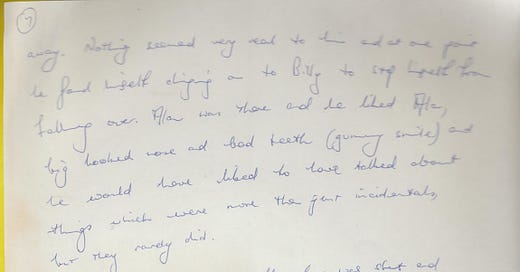 7
away. Nothing seemed very real to him and at one point
he found himself clinging on to Billy to stop himself from
falling over. Alan was there and he liked Alan,
big hooked nose and bad teeth (gummy smile) and
he would have liked to have talked about
things which were more than just incidentals,
but they rarely did.
was shut and